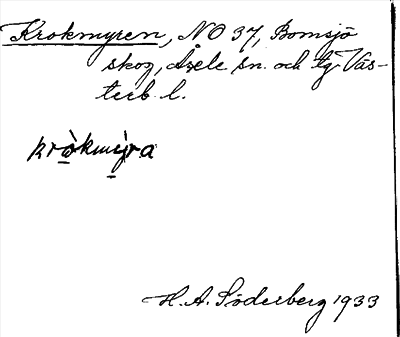 Krokmyren, NO 37, Bomsjö
skog, Åsele sn. och tg Väs-
terb. l.
kròkmỳra
H. A. Söderberg 1933